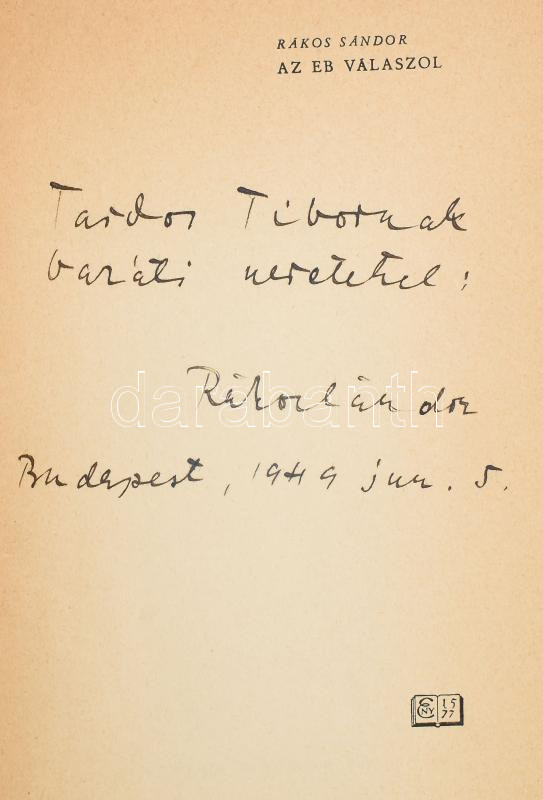 RÁKOS SÁNDOR
AZ EB VÁLASZOL
Tardos Tibornak
baráti szeretettel:
Rákos Sándor
darabanth
Budapest, 1949 jun. 5.
ENY 15
77